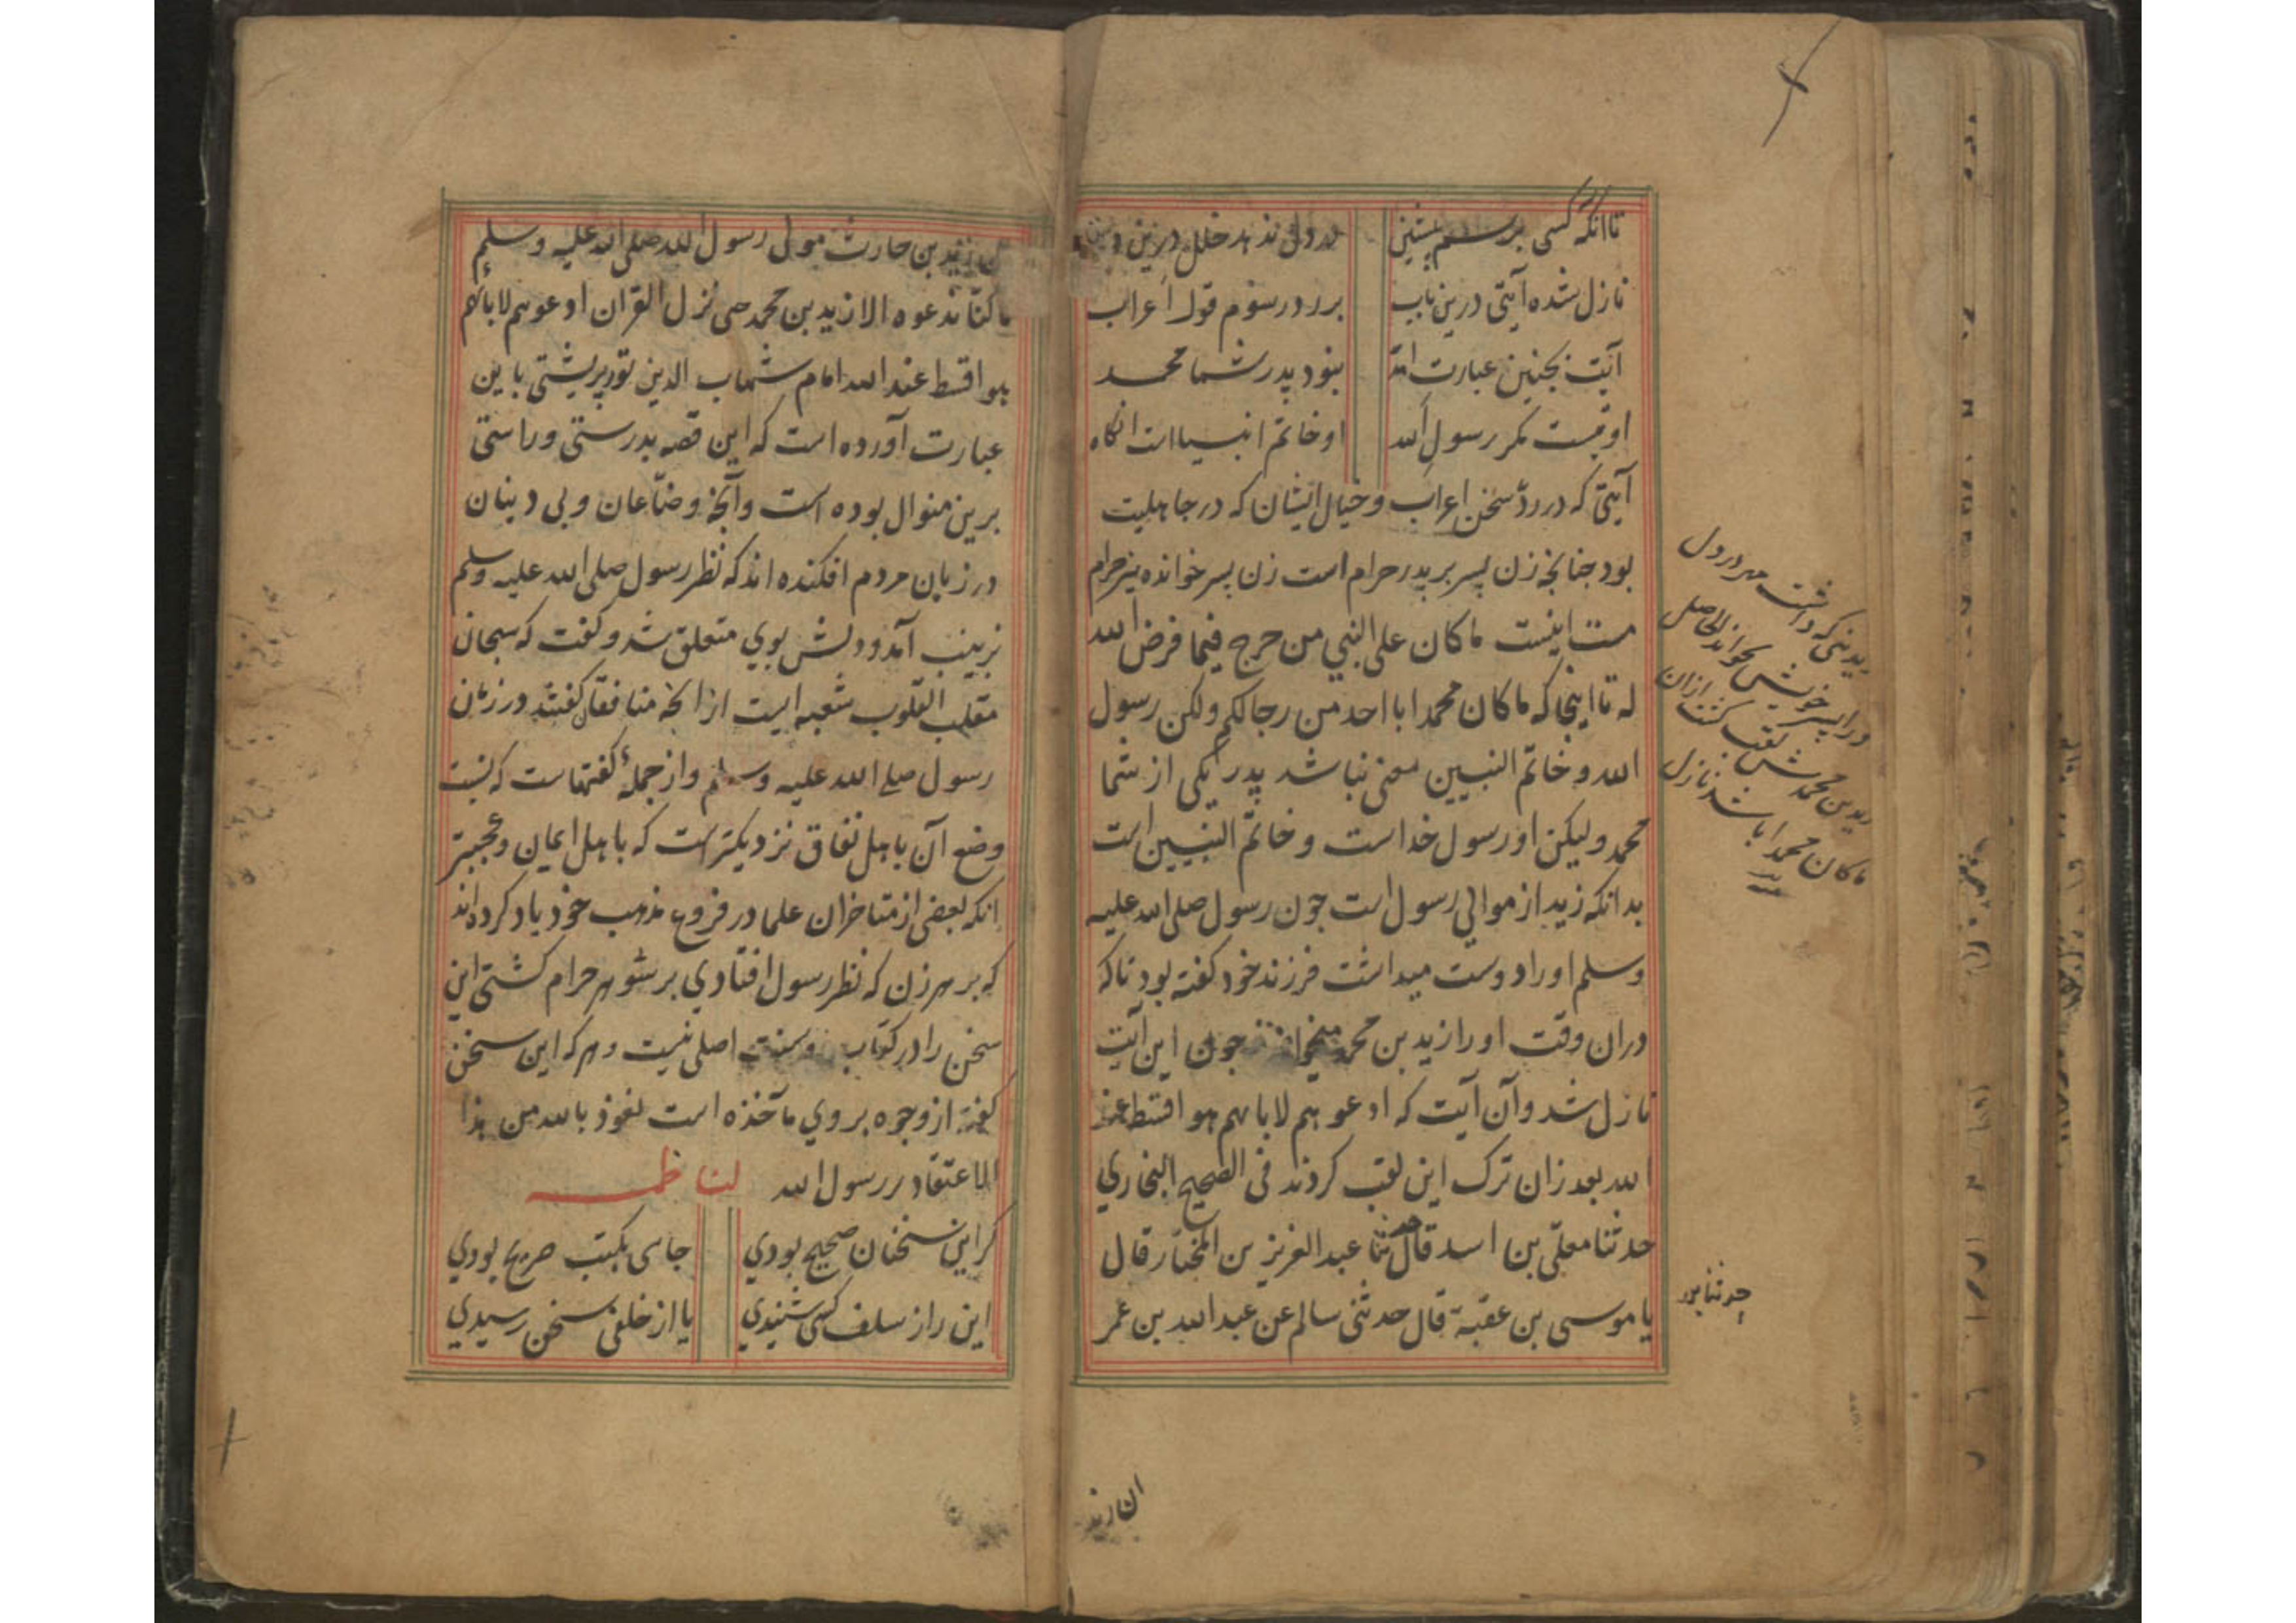 تا آنکه کسی برسم پیشین در دل ندهد خلل درین دین
نازل شده آیتی درین باب بر رد رسوم قول اعراب
آیت بچنین عبارت آمد نبود پدر شما محمد
او نیست مکر رسول الله او خاتم انبیا است انکاه
آیتی که در رد سخن اعراب و خیال ایشان که در جاهلیت
بود چنانچه زن پسر بر پدر حرام است زن پسر خوانده نیز حرام
ست اینست ما کان علی النبی من حرج فیما فرض الله
له تا اینجا که ما کان محمد ابا احد من رجالکم ولکن رسول
الله و خاتم النبیین معنی نباشد پدر یکی از شما
محمد ولیکن او رسول خداست و خاتم النبیین است
بدانکه زید از موالی رسول است چون رسول صلی الله علیه
وسلم او را دوست میداشت فرزند خود کفته بود تا که
دران وقت او را زید بن محمد میخواندند چون این آیت
نازل شد و آن آیت که ادعوهم لابائهم هو اقسط عند
الله بعد زان ترک این لقب کردند فی الصحیح البخاری
حدثنا معلی بن اسد قال حدثنا عبد العزیز بن المختار قال
یا موسی بن عقبة قال حدثنی سالم عن عبد الله بن عمر
زیدنی که داشت مهر در دل
ورا پسر خویش خواند الحاصل
زید بن محمدش لقب کشت ازان
ما کان محمد ابا شد نازل
حدثنا
ان زید
زید بن حارث مولی رسول الله صلی الله علیه وسلم
ما کنا ندعوه الا زید بن محمد حتی نزل القران ادعوهم لابائهم
هو اقسط عند الله امام شهاب الدین تورپشتی باین
عبارت آورده است که این قصه بدرستی و راستی
برین منوال بوده است و آنچه وضاعان و بی دینان
در زبان مردم افکنده اند که نظر رسول صلی الله علیه وسلم
بزینب آمد و دلش بوی متعلق شد و کفت که سبحان
مقلب القلوب شعبه ایست از انچه منافقان کفتند در زمان
رسول صلی الله علیه وسلم و از جمله کفتهاست که نسبت
وضع آن باهل نفاق نزدیکترست که باهل ایمان و عجبتر
انکه بعضی از متاخران علما در فروع مذهب خود یاد کرده اند
که بر هر زن که نظر رسول افتادی بر شوهر حرام کشتی این
سخن را در کتاب و سنت اصلی نیست و هر که این سخن
کفته از وجوه بروی مآخذه است نعوذ بالله من هذا
الاعتقاد بر رسول الله لناظمه
کر این سخنان صحیح بودی جائی بکتب صریح بودی
این را ز سلف کسی شنیدی یا از خلفی سخن رسیدی